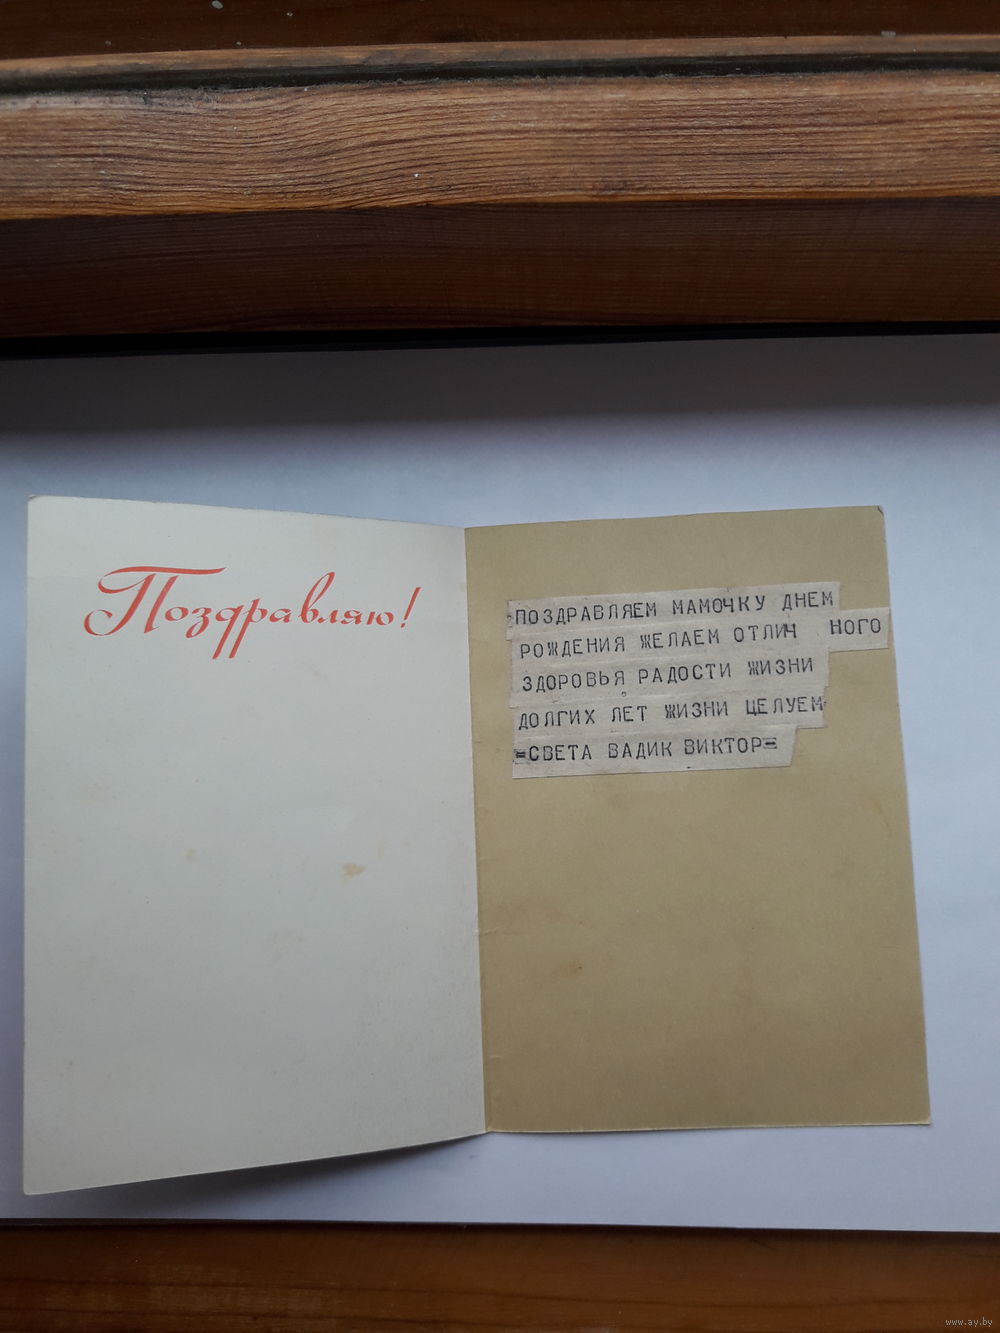 Поздравляю!
ПОЗДРАВЛЯЕМ МАМОЧКУ ДНЕМ
РОЖДЕНИЯ ЖЕЛАЕМ ОТЛИЧ НОГО
ЗДОРОВЬЯ РАДОСТИ ЖИЗНИ
ДОЛГИХ ЛЕТ ЖИЗНИ ЦЕЛУЕМ
=СВЕТА ВАДИК ВИКТОР=
www.ay.by